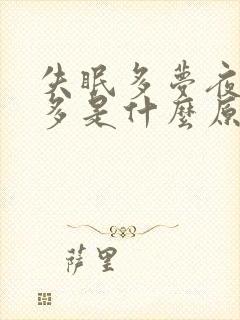 失眠多夢夜
多是什麼原
萨里